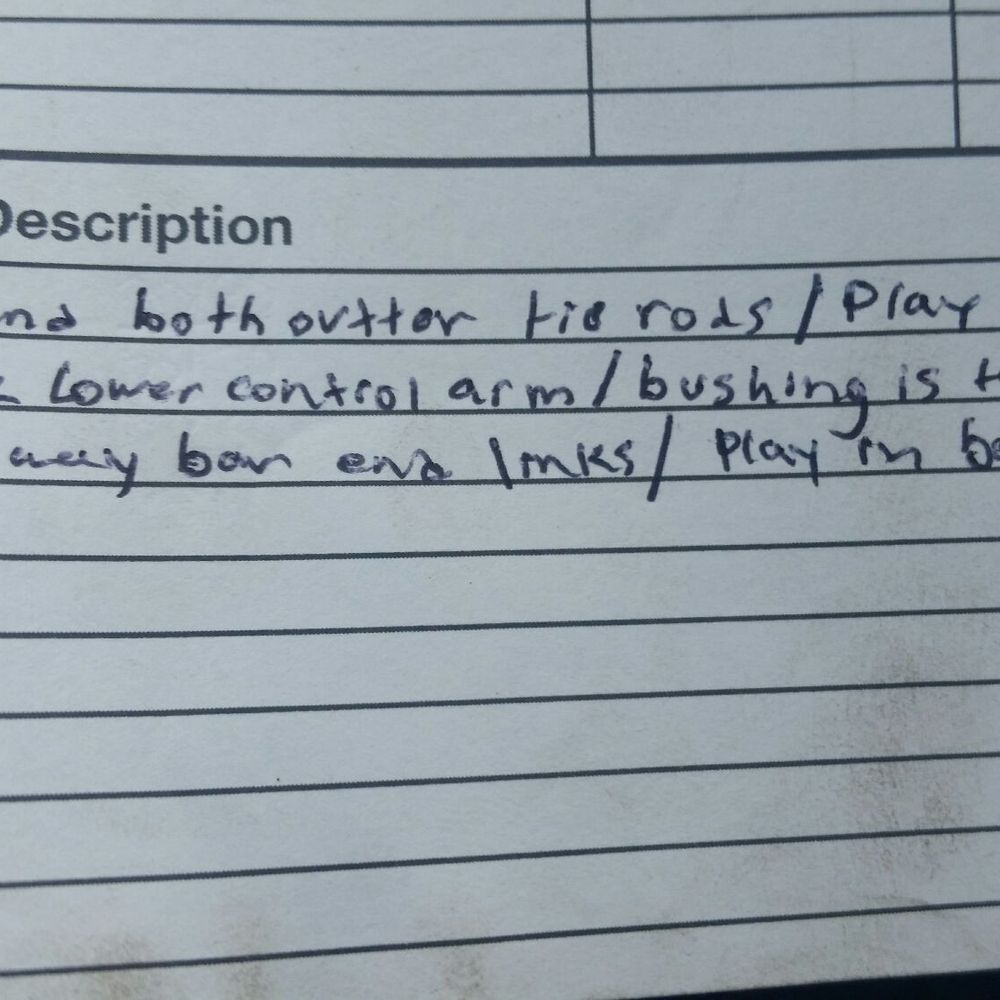 Description
and both outter tie rods / Play
Lower control arm / bushing is
sway bar end links / Play in